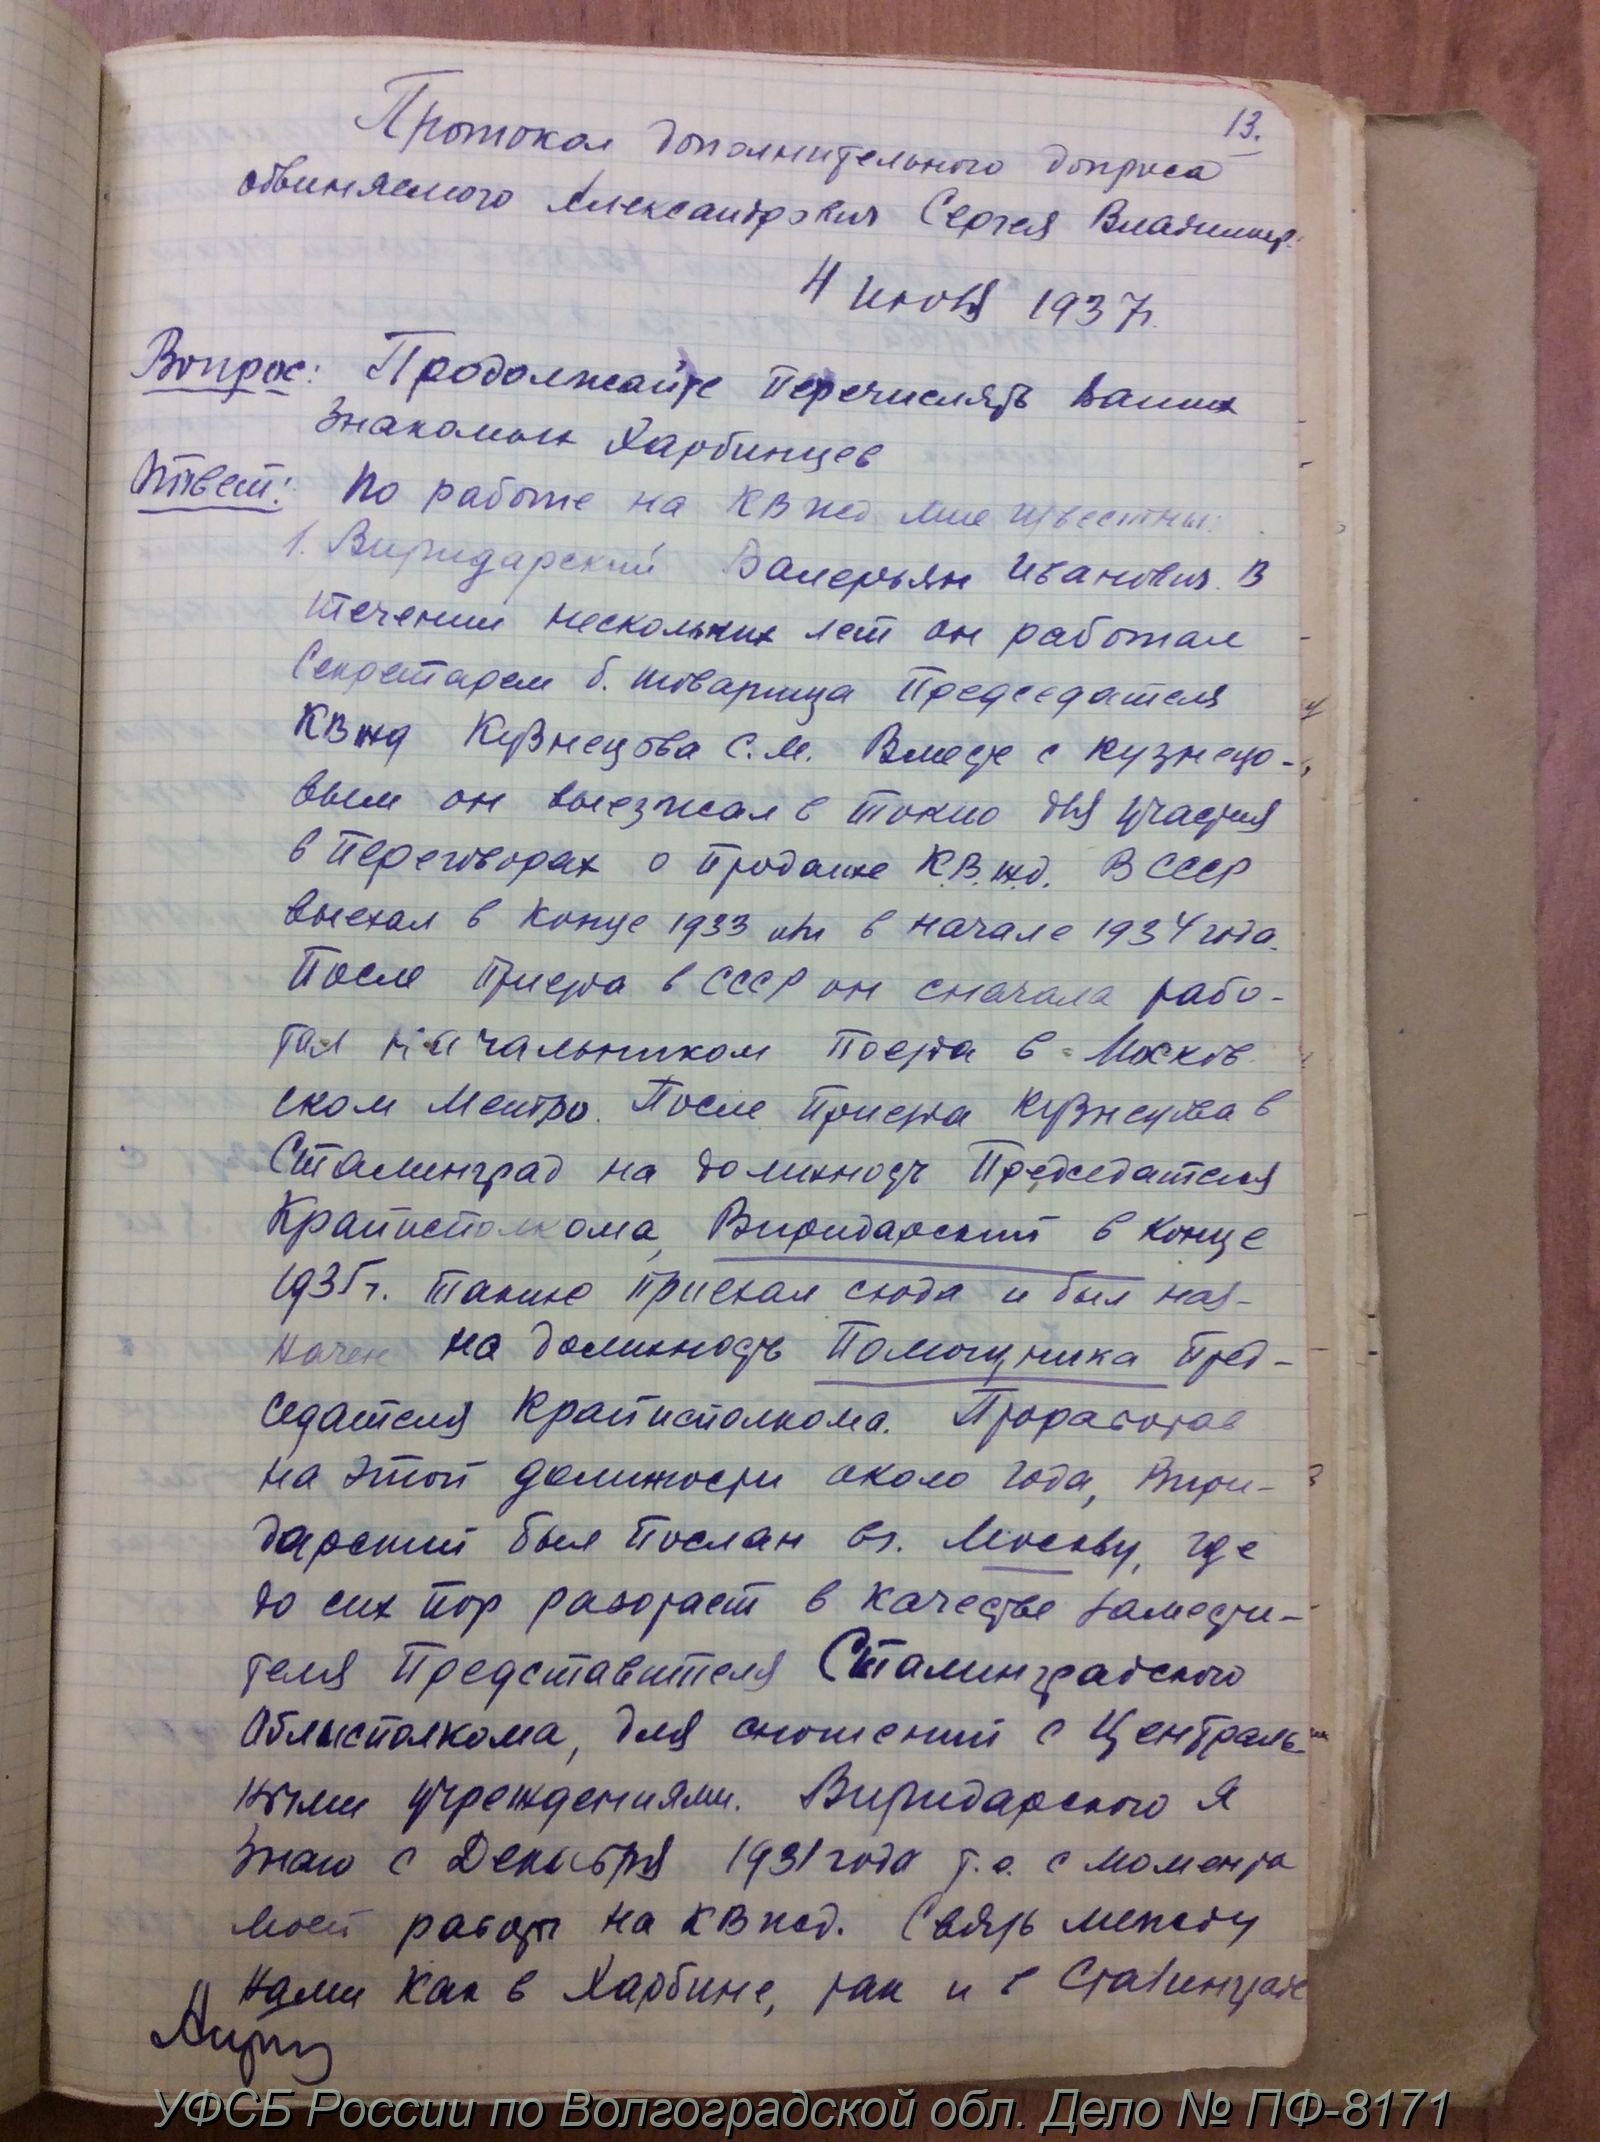 13.
Протокол дополнительного допроса
обвиняемого Александрович Сергея Владимир.
4 июня 1937г.
Вопрос: Продолжайте перечислять ваших
знакомых Харбинцев
Ответ: По работе на КВжд мне известны:
1. Виридарский Валерьян Иванович. В
течении нескольких лет он работал
Секретарем б. товарища Председателя
КВжд Кузнецова С.М. Вместе с Кузнецо-
вым он выезжал в Токио для участия
в переговорах о продаже К.В.ж.д. В СССР
выехал в конце 1933 или в начале 1934 года.
После приезда в СССР он сначала рабо-
тал начальником поезда в Москов
ском Метро. После приезда Кузнецова в
Сталинград на должность Председателя
Крайисполкома, Виридарский в конце
1935г. также приехал сюда и был наз-
начен на должность Помощника Пред-
седателя Крайисполкома. Проработав
на этой должности около года, Вири-
дарский был послан в г. Москву, где
до сих пор работает в качестве замести-
теля Представителя Сталинградского
Облисполкома, для сношений с Централь-
ными учреждениями. Виридарского я
знаю с Декабря 1931 года т.е. с момента
моей работы на КВжд. Связь между
нами как в Харбине, так и в Сталинграде
УФСБ России по Волгоградской обл. Дело № ПФ-8171